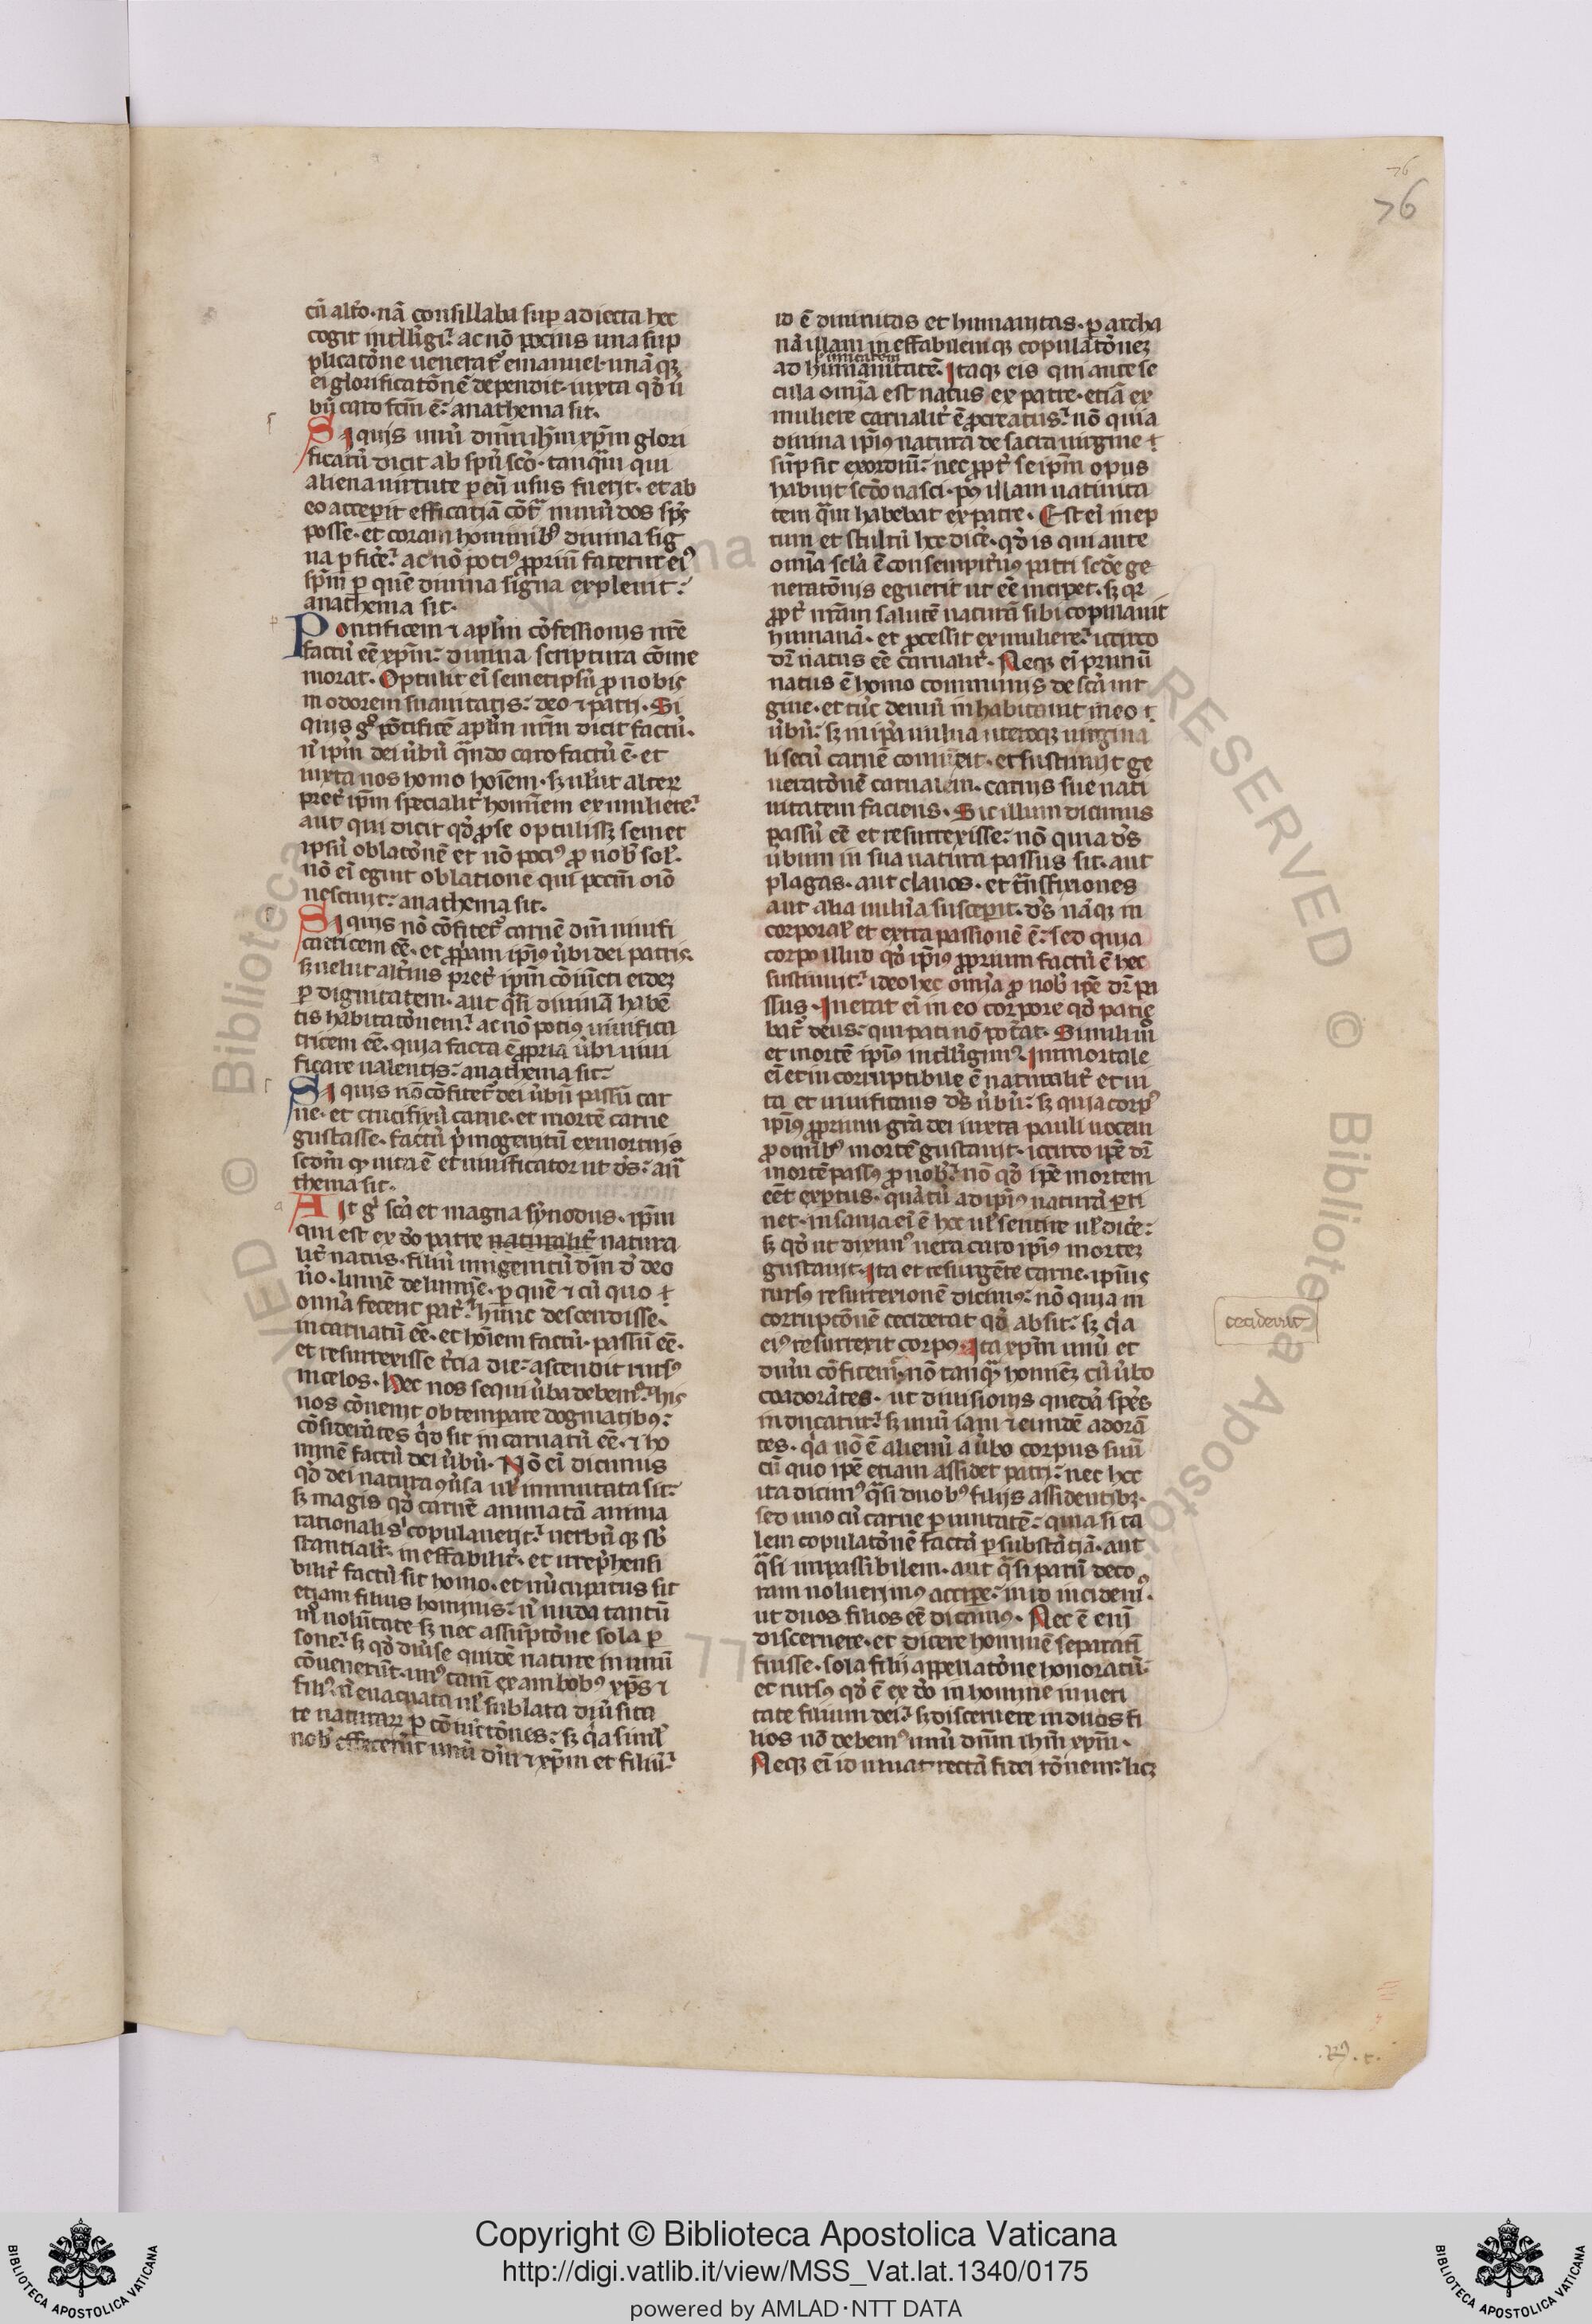 76
76
cū alt̉o · nā consillaba sup̱ adiecta hec
cogit intll̓igi᷑ ac nō pocius una sup
plicatōne ueneratᷣ emanuel · unā qꝫ
ei glorificatōnē dependit · iuxta qd̓ ū
bū caro fcm̄ ē᷑ anathema sit ·
Si quis unū dn̄m ih̄m xp̄m glori
ficatū dicit ab spū scō · tanqᷓm qui
aliena uirtute p̱ eū usus fuerit · et ab
eo acceperit efficatiā cōtᷓ inmūdos sp̄s
posse · et coram hominibꝰ diuina sig
na p̱ficē᷑ ac nō potiꝰ ꝓpriū fatetur eiꝰ
sp̄m p̱ quē diuina signa expleuit᷑
anathema sit ·
Pontificem ⁊ aplm̄ cōfessionis nr̄e
factū eē xp̄m᷑ diuina scriptura cōme
morat · Optulit ei̅ semetipsū ꝓ nobis
in odorem suauitatis᷑ deo ⁊ patri · Si
quis gͦ pōtificē aplm̄ nr̄m dicit factū ·
n̄ ipm̄ dei ūbū qᷓndo caro factū ē · et
iuxta nos homo hoīem · sꝫ uel̓ut alter
pret̓ ipm̄ specialit̓ hominem ex muliere᷑
aut qui dicit qd̓ ꝓ se optulissꝫ semet
ipsū oblatōnē et nō pociꝰ ꝓ nob̓ sol̓ ·
nō ei̅ eguit oblatione qui pccm̄ oīo
nesciuit᷑ anathema sit ·
Si quis nō cōfitetᷣ carnē dn̄i uiuifi
catricem eē · et ꝓp̓am ipiꝰ ūbi dei patris
sꝫ uelut alt̓ius pret̓ ipm̄ cōiūcti eidēꝫ
p̱ dignitatem · aut qᷓsi diuinā habē
tis habitatōnem᷑ ac nō potiꝰ uiuifica
tricem eē · quia facta ē ꝓpria ūbi uiui
ficare ualentis᷑ anathema sit᷑
Si quis nō cōfitetᷣ dei ūbū passū car
ne · et crucifixū carne · et mortē carne
gustasse · factū p̓mogenitū ex mortuis
scdm̄ qꝫ uita ē et uiuificator ut ds̄᷑ ana
thema sit ·
Ait gͦ scā et magna synodus · ipm̄
qui est ex dō patre naturalit̓ natura
lit̓ natus · filiū unigenitū dm̄ d̓ deo
ūo · lumē de lumīe · p̱ quē ⁊ cū quo ⁊
omīa fecerit pat̓᷑ hunc descendisse ·
incarnatū eē · et hoīem factū · passū eē ·
et resurrexisse t̓cia die᷑ ascendit rursꝰ
in celos · Hec nos sequi ūba debemꝰ᷑ his
nos cōuenit obtemperare dogmatibꝰ᷑
cōsiderātes qd̓ sit incarnatū eē · ⁊ ho
minē factū dei ūbū · Nō ei̅ dicimus
qd̓ dei natura ꝯūsa ul̓ inmutata sit᷑
sꝫ magis qd̓ carnē animatā anima
rationali s̓ copulauerit᷑ uerbū qꝫ sb̓
stantialit̓ · ineffabilit̓ · et irrep̓hensi
bilit̓ factū sit homo · et nūcupatus sit
etiam filius hominis᷑ n̄ nuda tantū
mͦ uolūtate sꝫ nec assūptōne sola p̱
sone᷑ sꝫ qd̓ diūse quidē nature in unū
cōuenerūt · unꝰ tam̄ ex ambobꝰ xp̄s ⁊
filiꝰ n̄ euacuata ul̓ sublata diūsita
te naturarꝝ p̱ cōiūctōnes᷑ sꝫ qia simul̓
nob̓ effecerūt unū dn̄m ⁊ xp̄m et filiū᷑
id ē diuinitas et humanitas · p̱ archa
nā illam ineffabilem qꝫ copulatōneꝫ
l̓ unitatem
ad humanitatē · Itaqꝫ eis qui ante se
cula omīa est natus ex patre · etiā ex
muliere carnalit̓ ē ꝓcreatus᷑ nō quia
diuina ipiꝰ natura de sacta uirgine ⁊
sūpsit exordiū᷑ nec ꝓpt̓ seipm̄ opus
habuit scdo nasci · pꝰ illam natiuita
tem qᷓm habebat ex patre · Est ei̅ inep
tum et stultū hec dicē · qd̓ is qui ante
omīa scl̓a ē consempit̓nꝰ patri scd̓e ge
neratōnis eguerit ut eē inciperet · sꝫ qꝛ
ꝓpt̓ nr̄am salutē naturā sibi copulauit
humanā · et ꝓcessit ex muliere᷑ iccirco
dr̄ natus eē carnalit̓ · Neqꝫ ei̅ primū
natus ē homo communis de scā uir
gine · et tūc demū inhabitauit in eo ⁊
ūbū᷑ sꝫ in ip̄a uulua uteroqꝫ uirgina
li secū carnē coniūxit · et sustinuit ge
neratōnē carnalem · carnis sue nati
uitatem faciens · Sic illum dicimus
passū eē et resurrexisse᷑ nō quia ds̄
ūbum in sua natura passus sit · aut
plagas · aut clauos · et tᷓnsfixiones
aut alia uulnera susceperit · ds̄ nāqꝫ in
corporal̓ et extra passionē ē᷑ sed quia
corpo illud qd̓ ipiꝰ ꝓprium factū ē hec
sustinuit᷑ ideo hec omīa ꝓ nob̓ ipē dr̄ pa
ssus · Inerat ei̅ in eo corpore qd̓ patie
bat̓ deus᷑ qui pati nō pot̓at · Simili mͦ
et mortē ipiꝰ intll̓igimꝰ · Immortale
ei̅ et incorruptibile ē naturalit̓ et ui
ta et uiuificans ds̄ ūbū᷑ sꝫ quia corpꝰ
ipiꝰ ꝓprium grā dei iuxta pauli uocem
ꝓ omībꝰ mortē gustauit · iccirco ipē dr̄
mortē passꝰ ꝓ nob̓᷑ nō qd̓ ipē mortem
eēt exp̱tus · quātū ad ipiꝰ naturā p̱ti
net · insania ei̅ ē hoc ul̓ sentire ul̓ dicē᷑
sꝫ qd̓ ut diximꝰ uera caro ipiꝰ morteꝫ
gustauit · Ita et resurgēte carne · ipiꝰ
rursꝰ resurrexionē dicimꝰ᷑ nō quia in
corruptōnē ceciderat qd̓ absit᷑ sꝫ qia
eiꝰ resurrexit corpꝰ · Ita xp̄m unū et
dn̄m cōfitemᷣ · nō tanqᷓ hominēꝫ cū ūbo
coadorātes · ut diuisionis quedā sp̄es
inducatur᷑ sꝫ unū iam ⁊ eundē adorā
tes · qia nō ē alienū a ūbo corpus suū
cū quo ipē etiam assidet patri᷑ nec hec
ita dicimꝰ qᷓsi duobꝰ filijs assidentibꝫ ·
sed uno cū carne p̱ unitatē᷑ quia si ta
lem copulatōnē factā p̱ substātiā · aut
qᷓsi impassibilem · aut qᷓsi parū deco
ram noluerimꝰ accipe᷑ in id incidemꝰ ·
ut duos filios eē dicamus · Nec ē enī
discernere · et dicere hominē separatī
fuisse · sola filij appellatōne honoratū᷑
et rursꝰ qd̓ ē ex dō in homine in ueri
tate filium dei᷑ sꝫ discernere in duos fi
lios nō debemꝰ unū dn̄m ih̄m xp̄m ·
Neqꝫ ei̅ id uiuat rectā fidei rōnem᷑ licꝫ
ceciderit